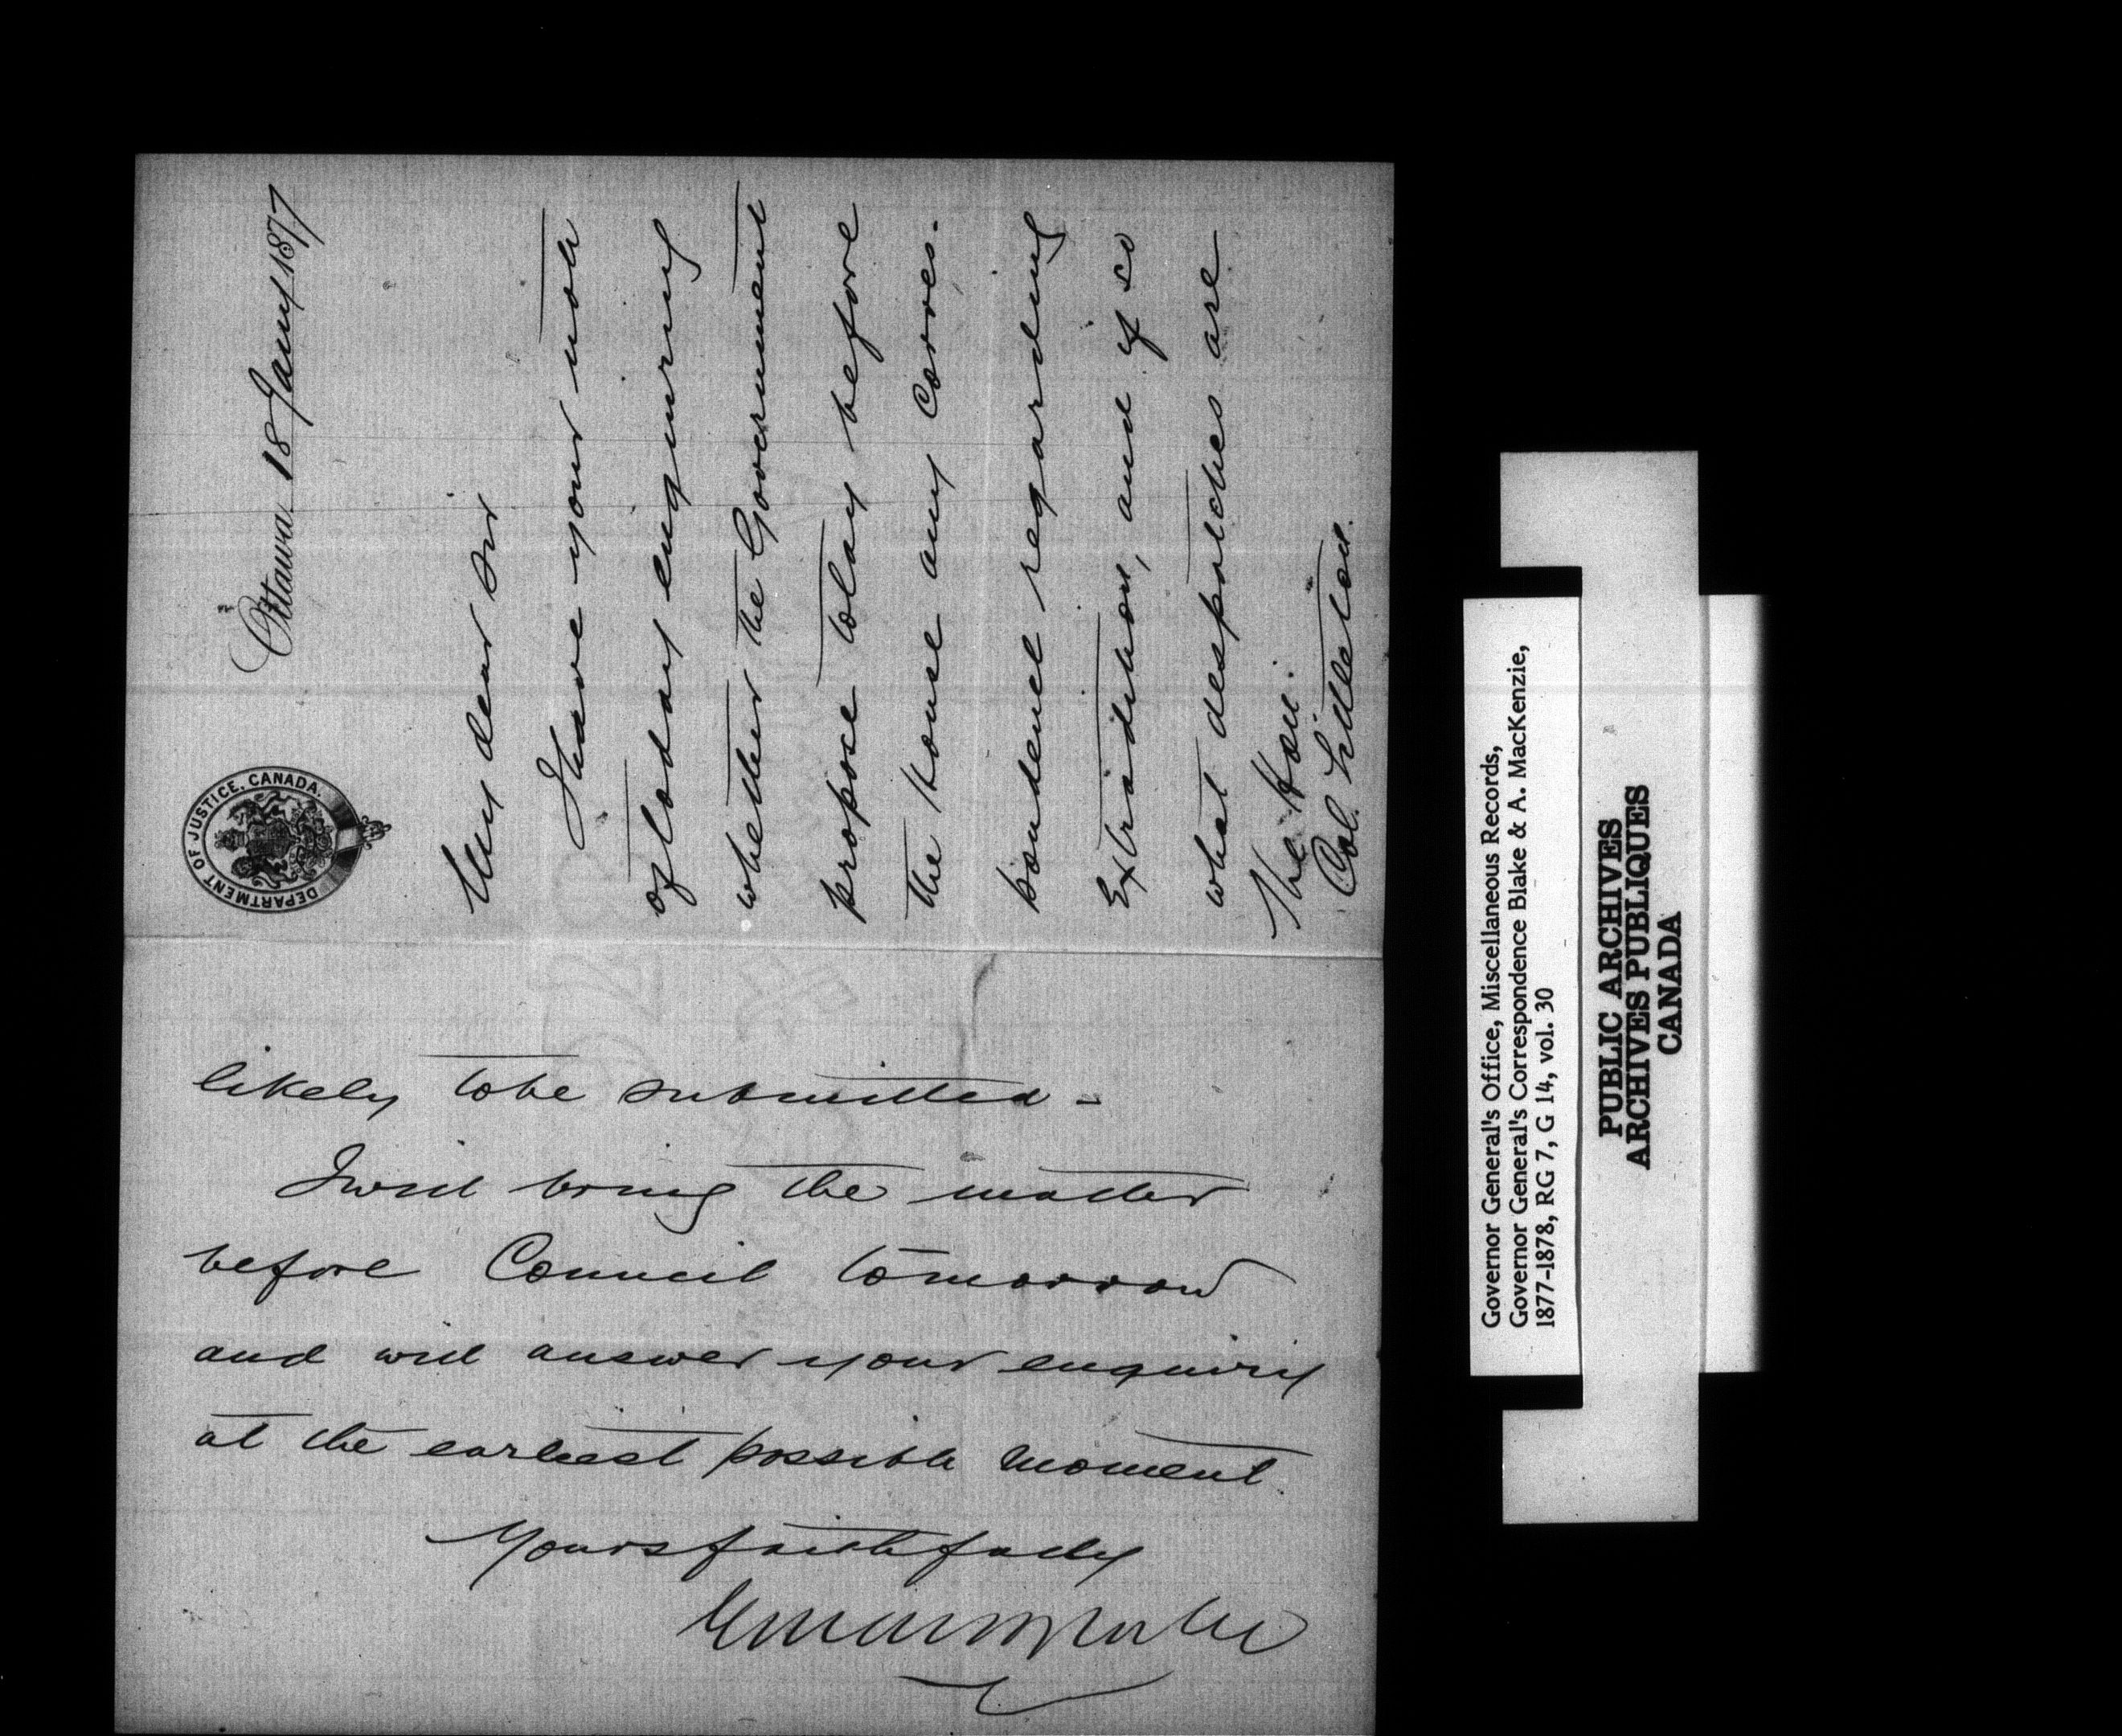 DEPARTMENT OF JUSTICE, CANADA.
Ottawa 18 Jany 1877
My dear Sir
I have your note
of today enquiring
whether the Government
propose to lay before
the House any corres-
pondence regarding
Extradition, and if so
what despatches are
The Hon:
Col. Littleton.
likely to be submitted -
I will bring the matter
before Council tomorrow
and will answer your enquiry
at the earliest possible moment.
Yours faithfully
Edward Blake
Governor General's Office, Miscellaneous Records,
Governor General's Correspondence Blake & A. MacKenzie,
1877-1878, RG 7, G 14, vol. 30
PUBLIC ARCHIVES
ARCHIVES PUBLIQUES
CANADA